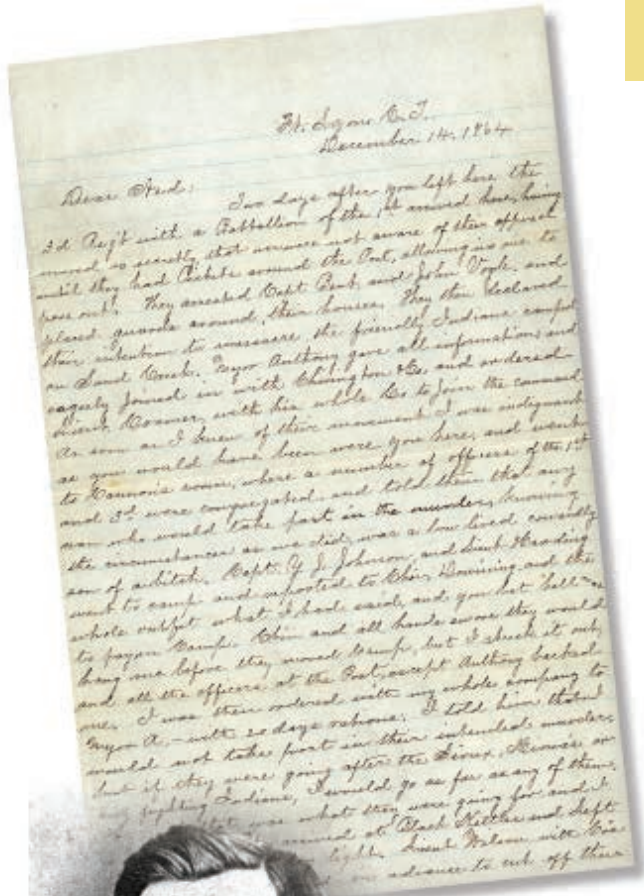 Ft. Lyon C. T.
December 14, 1864
Dear Ned:
Two days after you left here the
3d Reg't with a Battallion of the 1st arrived here, having
moved so secretly that we were not aware of their approach
until they had Pickets around the Post, allowing no one to
pass out! They arrested Capt Bent and John Vogle and
placed guards around their houses. They then declared
their intention to massacre the friendly Indians camped
on Sand Creek. Major Anthony gave all information, and
eagerly joined in with Chivington &Co. and ordered
Lieut. Cramer, with his whole Co to join the command
As soon as I knew of their movement I was indignant
as you would have been were you here, and went
to Cannon's room, where a number of officers of the 1st
and 3d were congregated and told them that any
man who would take part in the murders, knowing
the circumstances as we did, was a low lived cowardly
son of a bitch. Capt. Y. J. Johnson and Lieut Harding
went to camp and reported to Chiv, Downing and the
whole outfit what I had said, and you bet hell was
to pay in camp. Chiv and all hands swore they would
hang me before they moved camp, but I stuck it out,
and all the officers at the Post, except Anthony backed
me. I was then ordered with my whole company to
Major A.- with 20 days rations. I told him that I
would not take part in their intended murder,
but if they were going after the Sioux, Kiowa's or
fighting Indians, I would go as far as any of them.
was what they were going for and I
arrived at Black Kettles and Left
light. Lieut Wilson with Co
in advance to cut off their